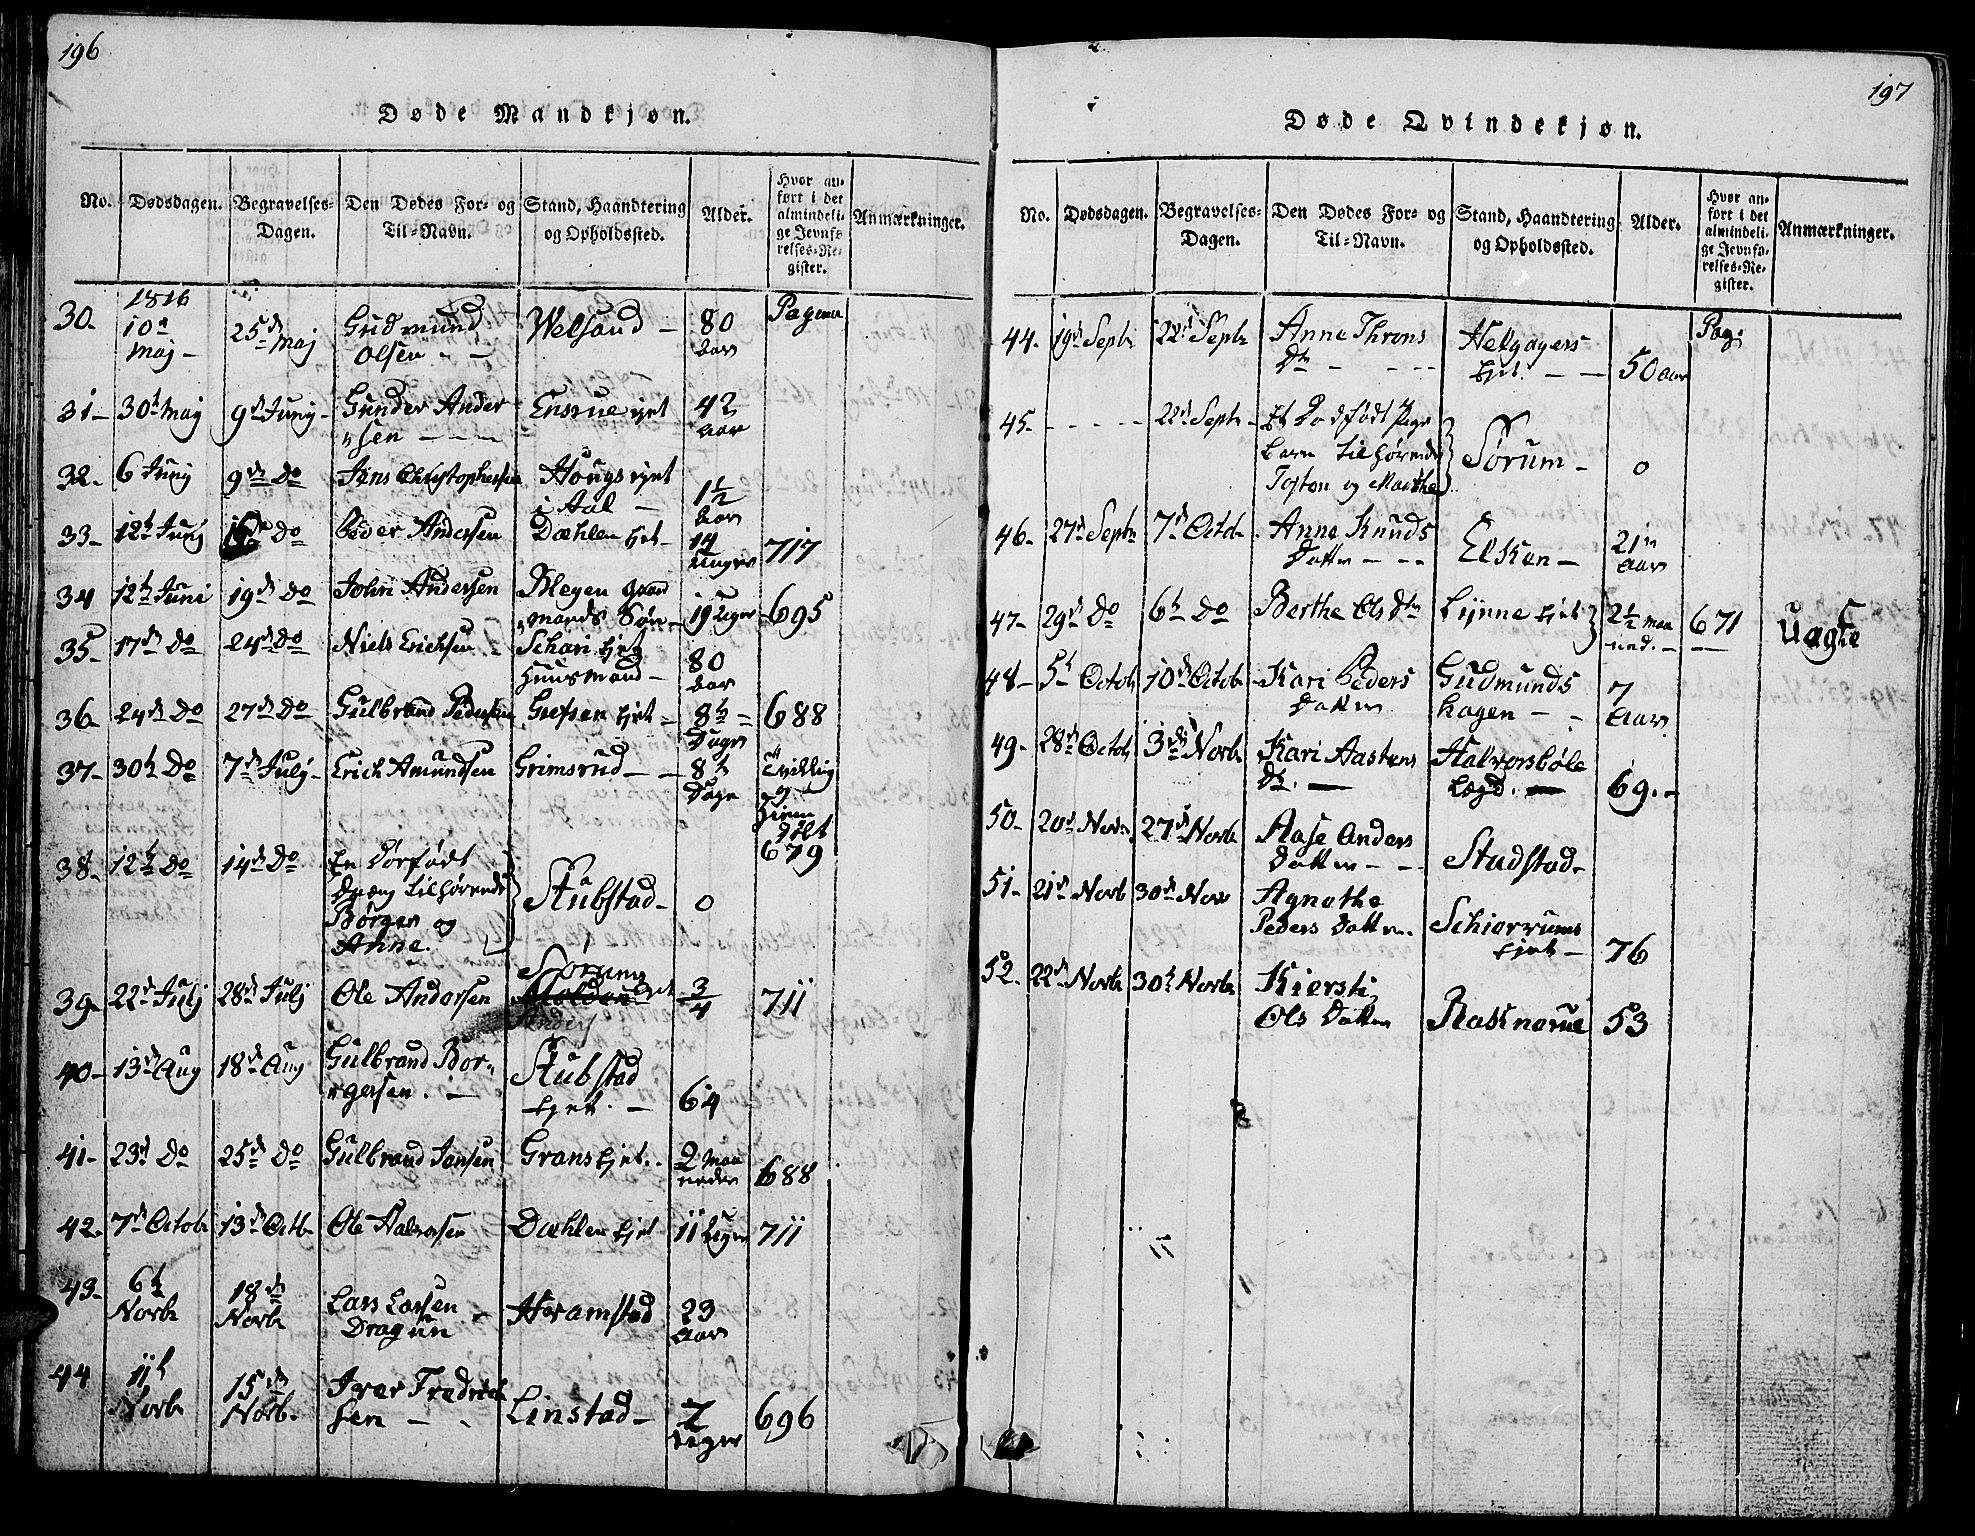 196
Døde Mandkjøn.
No. Dødsdagen. Begravelses-Dagen. Den Dødes For- og Til-Navn. Stand, Haandtering og Opholdssted. Alder. Hvor anført i det almindelige Jevnførelses-Register. Anmærkninger.
1816 Pagina
30. 10 Maj 25 Maj Gudmund Olsen Welsand 80 Aar
31 30t Maj 9d Junij Gunder Andersen Ensrue ejet 42 Aar
32. 6 Junij 9d Do Jens Christophersen Hougs ejet i Aal 1½ Aar
33 12t Junij 16 Do Peder Andersen Dæhlen Ejet 14 Uger 717
34 12t Juni 19d Do John Andersen Blegen Gaardmands Søn 19 Uger 695
35 17d Do 24d Do Niels Erichsen Schari Ejet Huusmand 80 Aar
36 24d Do 27d Do Gulbrand Pedersen Grefsen Ejet 8t Dage 688
37 30t Do 7d Julij Erich Amundsen Grimsrud 8t Dage Tvilling og Hjemmedøbt 679
38. 12t Do 14d Do En Dødfødt Dreng tilhørende Børger og Anne. Stubstad 0
39. 22d Julij 28d Julij Ole Andersen Sørums Ejet ¾ 711
40 13d Aug 18d Aug Gulbrand Borgersen Stubstad Ejet. 64
41 23d Do 25d Do Gulbrand Jansen Grans Ejet. 2 Maaneder 688
42. 7d Octob 13d Octb. Ole Halvorsen Dæhlen Ejet 11 Uger 711
43. 6t Novb 18d Novb Lars Larsen Dragun Haramstad 23 Aar
44 11t Novb 15d Novb. Iver Fredrichsen Linstad 7 Uger 696
197
Døde Qvindekjøn.
No. Dødsdagen. Begravelses-Dagen. Den Dødes For- og Til-Navn. Stand, Haandtering og Opholdssted. Alder. Hvor anført i det almindelige Jevnførelses-Register. Anmærkninger.
Pag:
44. 19d Septr 22d Septr Anne Throns Dtr Helgagers Ejet 50 Aar
45. 22d Septr Et Dødfødt Pige Barn tilhørende Tosten og Marthe Sørum 0
46. 27d Septr 7d Octob Anne Knuds Datter Elken 21 Aar
47 29d Do 6t Do Berthe Ols Dtr Lynne Ejet 2½ Maaned. 671 Uægte
48 5t Octob 10d Octob Kari Peders Datter Gudmunds hagen 7 Aar
49 28d Octob 3d Novb Kari Aastens Dtr. Halvorsbøle Lægd. 69.
50. 20d Novb 27d Novb Aase Anders Datter Studstad
51 21d Novb 30d Nov Agnethe Peders Datter. Schiørrums Ejet 76
52 22d Novb 30t Novb Kiersti Ols Datter Rosknerue 53